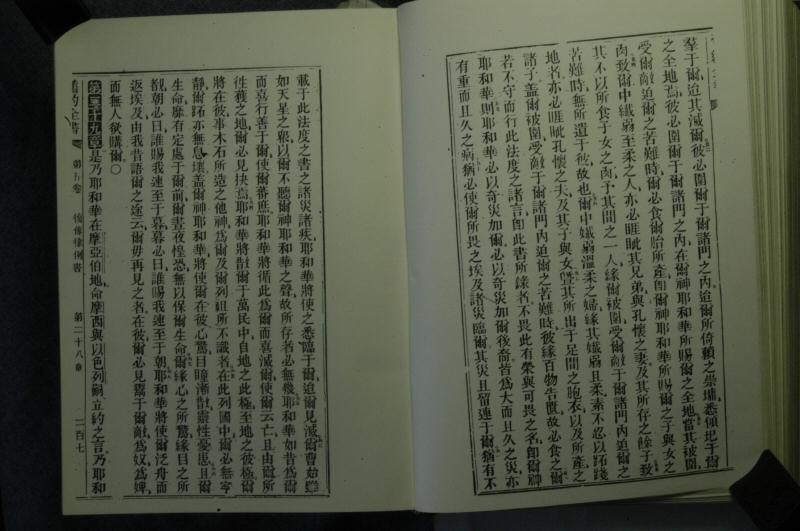 羣于爾迨其滅爾彼必圍爾于爾諸門之內迨爾所倚賴之崇墉悉傾圮于爾
之全地焉彼必圍爾于爾諸門之內在爾神耶和華所賜爾之全地當其被圍
受爾敵迫爾之苦難時爾必食爾胎所產卽爾神耶和華所賜爾之子與女之
肉致爾中纖弱至柔之人亦必睚眦其兄弟與孔懷之妻及其所存之餘子致
其不以所食子女之肉予其間之一人緣爾被圍受爾敵于爾諸門內迫爾之
苦難時無所遺于彼故也爾中纖弱溫柔之婦緣其纖弱且柔素不忍以跖踐
地者亦必睚眦孔懷之夫及其子與女曁其所出于足間之胞衣以及所產之
諸子蓋爾被圍受敵于爾諸門內迫爾之苦難時彼緣百物告匱故必食之爾
若不守而行此法度之諸言卽此書所錄者不畏此有榮與可畏之名卽爾神
耶和華則耶和華必以奇災加爾必以奇災加爾後裔皆為大而且久之災亦
有重而且久之病猶必使爾所畏之埃及諸災臨爾其災且留連于爾猶有不
載于此法度之書之諸災諸疾耶和華將使之悉臨于爾迨爾見滅爾曹始
如天星之衆以爾不聽爾神耶和華之聲故所存者必無幾耶和華如昔為爾
而喜行善于爾使爾蕃庶耶和華將循此為爾而喜滅爾使爾云亡且由爾所
往獲之地爾必見抉焉耶和華將散爾于萬民中自地之此極至地之彼極爾
將在彼事木石所造之他神為爾及爾列祖所不識者在此列國中爾必無寧
靜爾跖亦無息壤蓋爾神耶和華將使爾在彼心驚目瞳漸散靈性憂思且爾
生命靡有定處于爾前爾晝夜惶恐無以保爾生命爾緣心之所驚緣目之所
覩朝必曰誰賜我速至于暮暮必曰誰賜我速至于朝耶和華將使爾泛舟而
返埃及由我昔語爾之途云爾毋再見之者在彼爾必見鬻于爾敵為奴為婢
而無人欲購爾○
第二十九章是乃耶和華在摩亞伯地命摩西與以色列嗣立約之言乃耶和
舊約全書 第五卷 復傳律例書 第二十八章 二百七